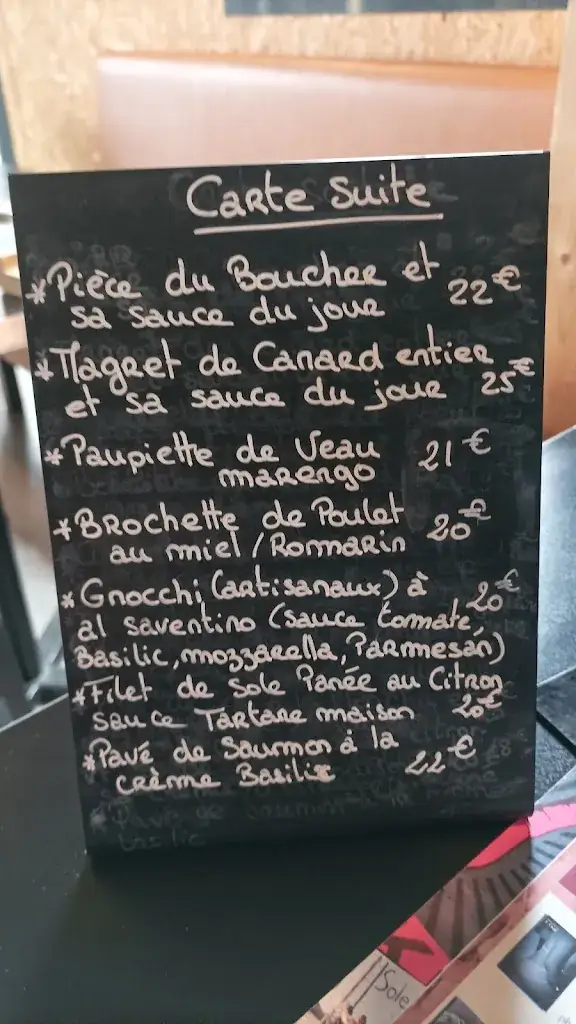 Carte Suite
*Pièce du Boucher et 22€
sa sauce du jour
*Magret de Canard entier
et sa sauce du jour 25€
*Paupiette de Veau 21€
marengo
*Brochette de Poulet 20€
au miel/Romarin
*Gnocchi (artisanaux) à 20€
al saventino (sauce tomate,
Basilic, mozzarella, Parmesan)
*Filet de sole Panée au Citron
sauce Tartare maison 20€
*Pavé de Saumon à la
crème Basilic 22€
Sole